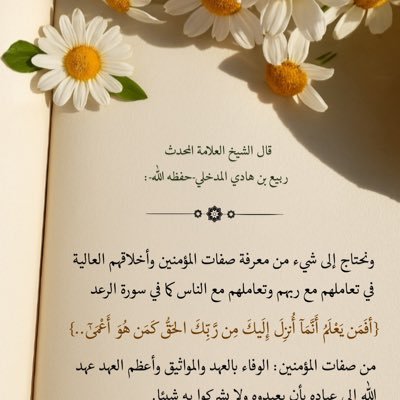 قال الشيخ العلامة المحدث
ربيع بن هادي المدخلي-حفظه الله-:
ونحتاج إلى شيء من معرفة صفات المؤمنين وأخلاقهم العالية
في تعاملهم مع ربهم وتعاملهم مع الناس كما في سورة الرعد
{أَفَمَن يَعْلَمُ أَنَّمَآ أُنزِلَ إِلَيكَ مِن رَّبِّكَ الحَقُّ كَمَن هُوَ أَعْمَىٰٓ..}
من صفات المؤمنين: الوفاء بالعهد والمواثيق وأعظم العهد عهد
الله إلى عباده بأن يعبدوه ولا يشركوا به شيئا.